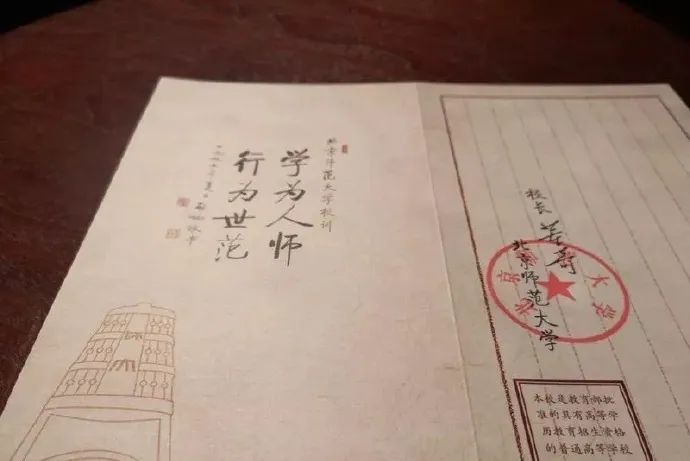 北京师范大学校训
学为人师
行为世范
校长 董奇
北京师范大学
北京师范大学
本校是教育部批
准的具有高等学
历教育招生资格
的普通高等学校